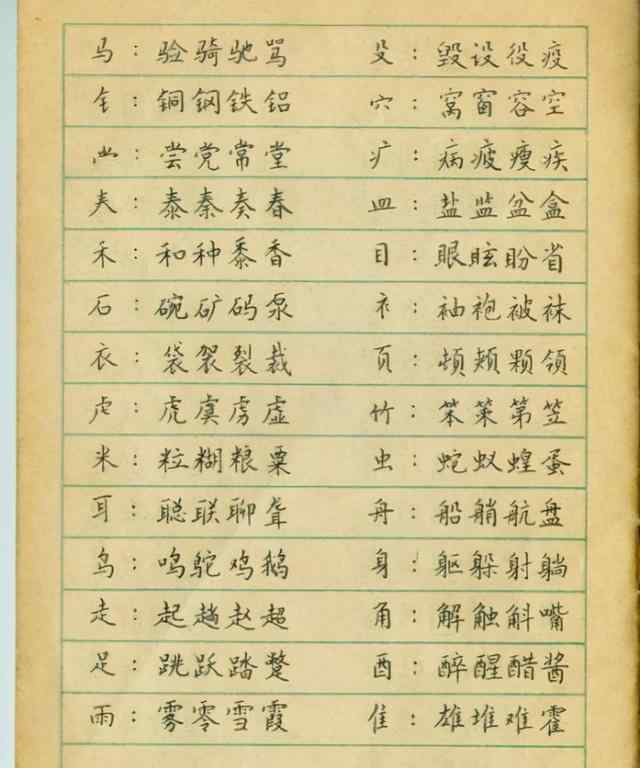 马：验骑驰骂 殳：毁设役疫
钅：铜钢铁铝 穴：窝窗容空
龸：尝党常堂 疒：病疲瘦疾
𡗗：泰秦奏春 皿：盐监盆盒
禾：和种黍香 目：眼眩盼省
石：碗矿码泵 衤：袖袍被袜
衣：袋袈裂裁 页：颅颊颗领
虍：虎虞虏虚 竹：笨策第笠
米：粒糊粮粟 虫：蛇蚁蝗蛋
耳：聪联聊耸 舟：船艄航盘
鸟：鸣鸵鸡鹅 身：躯躲射躺
走：起趟赵超 角：解触斛嘴
足：跳跃踏蹩 酉：醉醒醋酱
雨：雾零雪霞 隹：雄堆难霍